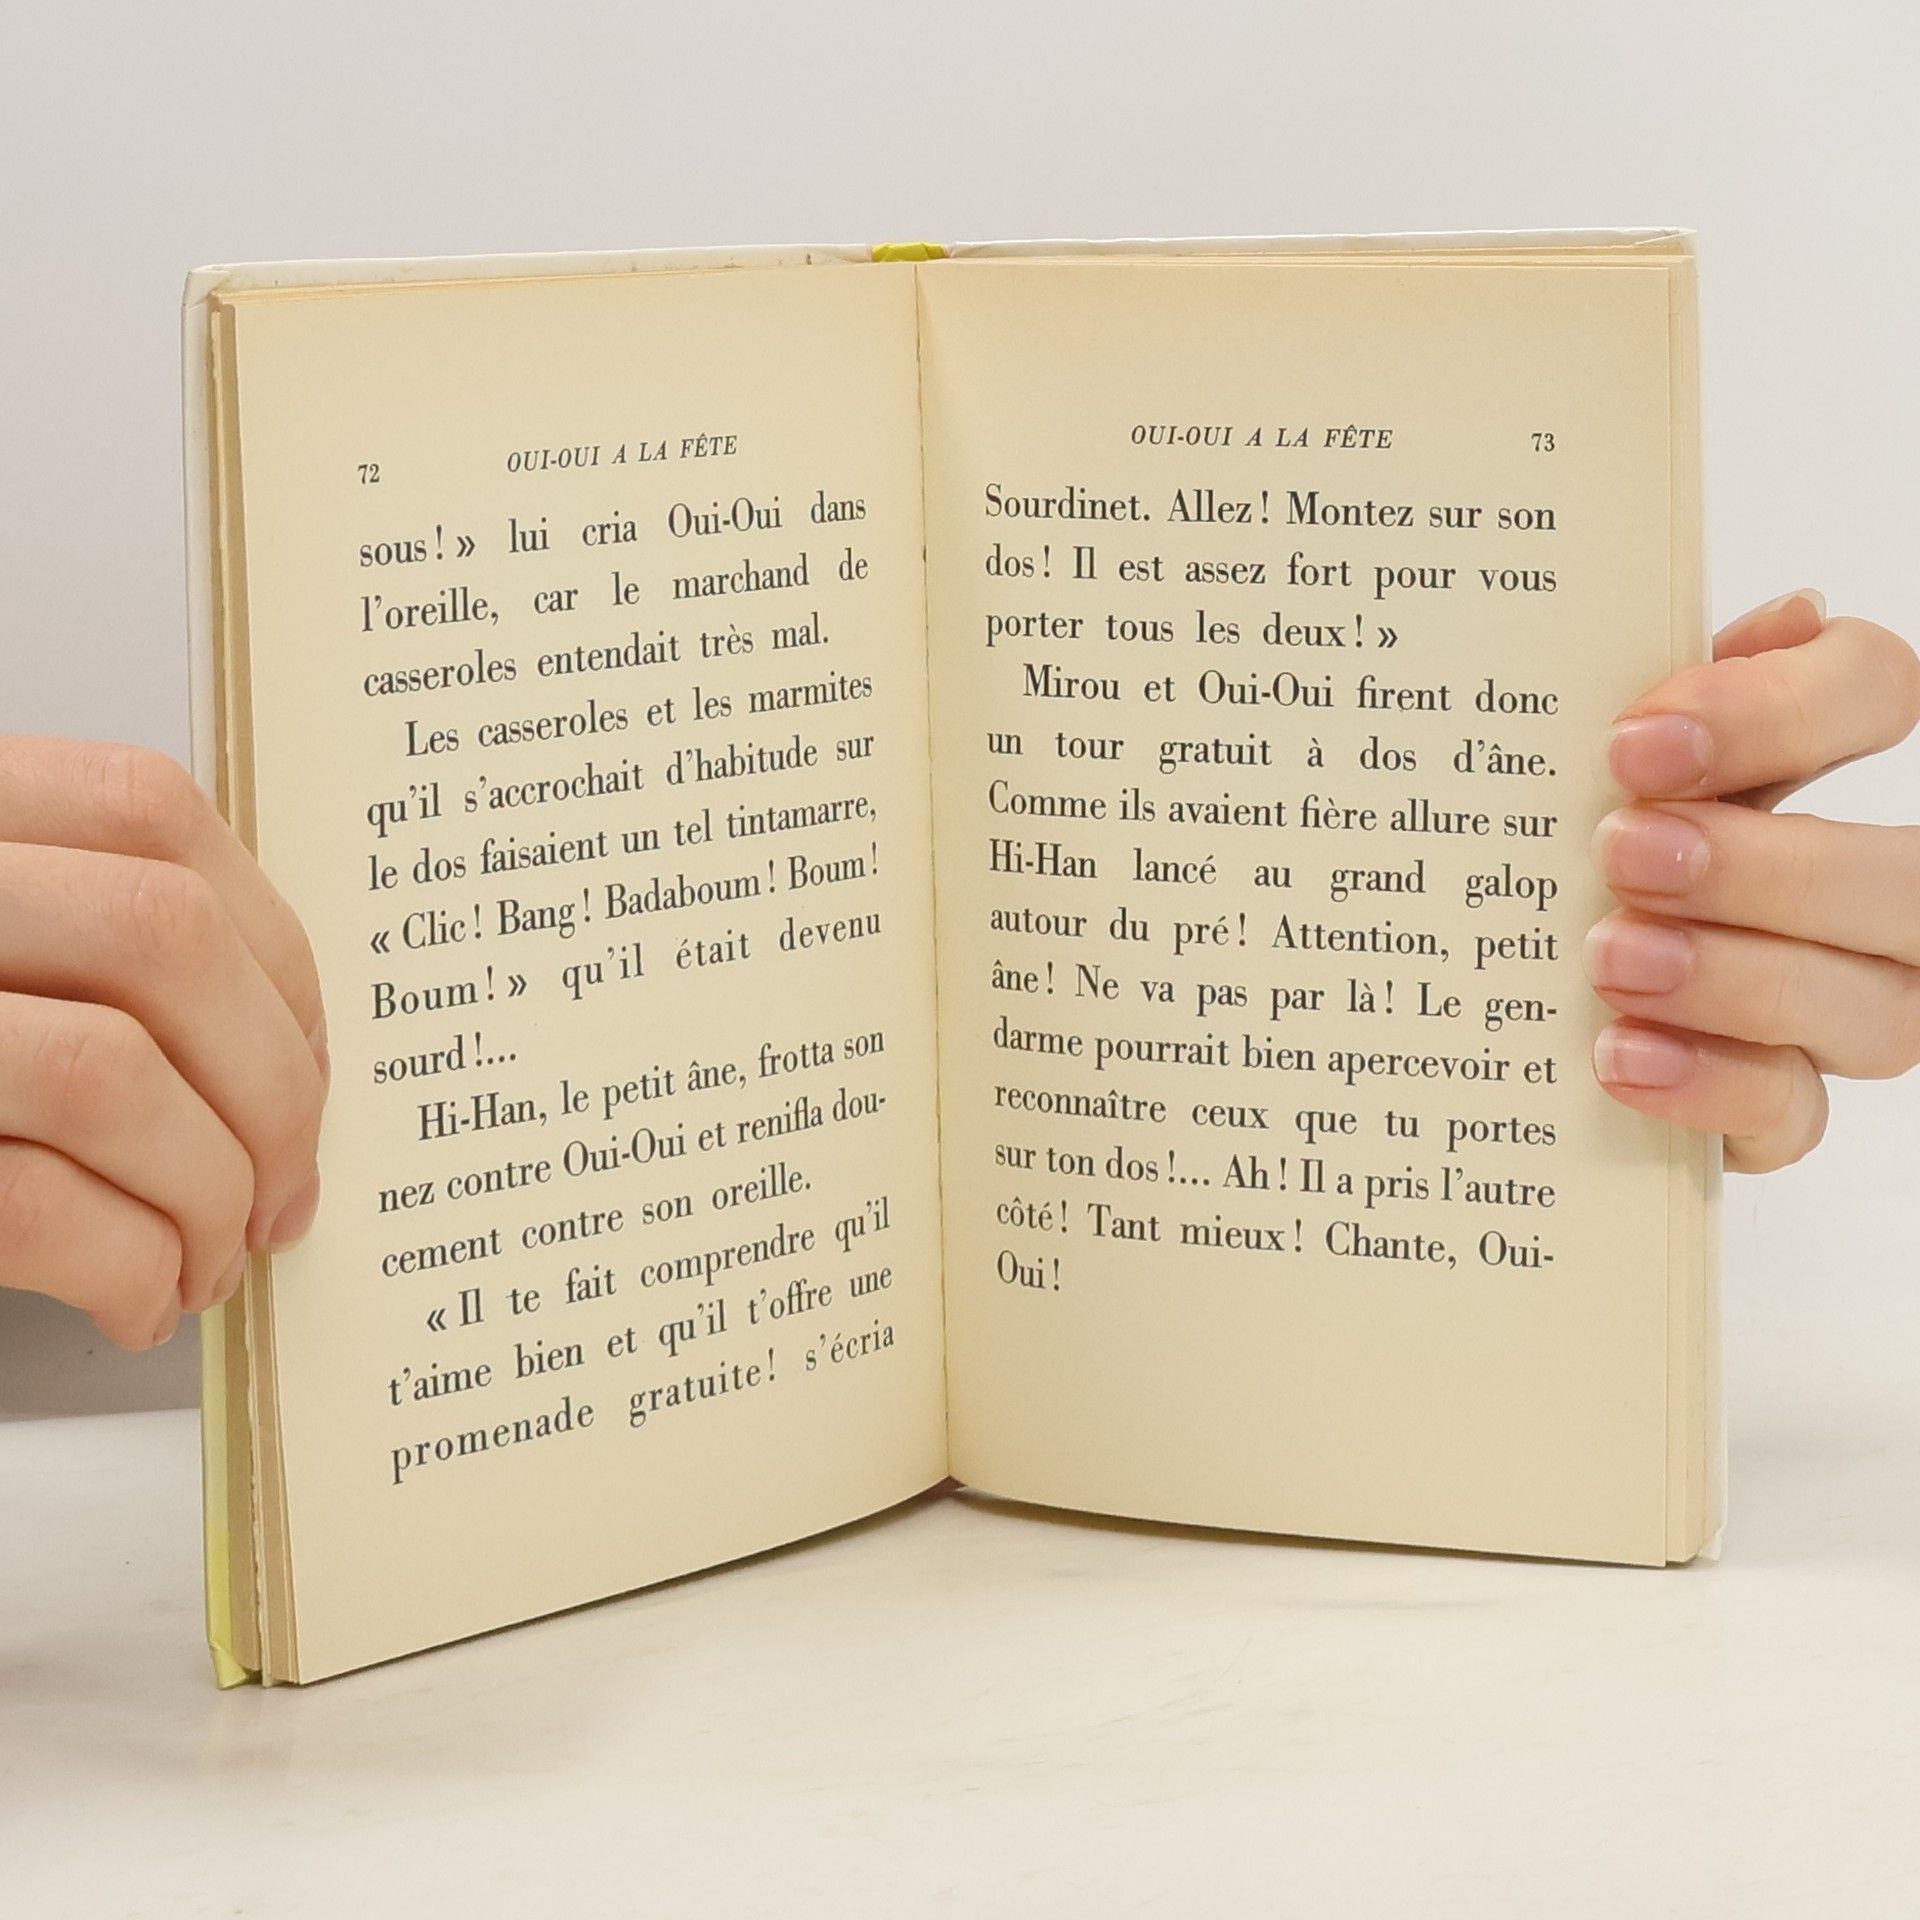 72 OUI-OUI A LA FÊTE
sous ! » lui cria Oui-Oui dans
l'oreille, car le marchand de
casseroles entendait très mal.
Les casseroles et les marmites
qu'il s'accrochait d'habitude sur
le dos faisaient un tel tintamarre,
« Clic ! Bang ! Badaboum ! Boum !
Boum ! » qu'il était devenu
sourd !...
Hi-Han, le petit âne, frotta son
nez contre Oui-Oui et renifla dou-
cement contre son oreille.
« Il te fait comprendre qu'il
t'aime bien et qu'il t'offre une
promenade gratuite ! s'écria
OUI-OUI A LA FÊTE 73
Sourdinet. Allez ! Montez sur son
dos ! Il est assez fort pour vous
porter tous les deux ! »
Mirou et Oui-Oui firent donc
un tour gratuit à dos d'âne.
Comme ils avaient fière allure sur
Hi-Han lancé au grand galop
autour du pré ! Attention, petit
âne ! Ne va pas par là ! Le gen-
darme pourrait bien apercevoir et
reconnaître ceux que tu portes
sur ton dos !... Ah ! Il a pris l'autre
côté ! Tant mieux ! Chante, Oui-
Oui !